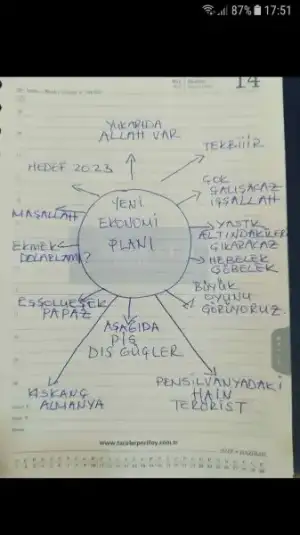 87% 17:51
14
YUKARIDA
ALLAH VAR
TEKBİİİR
HEDEF 2023
ÇOK
ÇALIŞACAZ
İŞŞALLAH
MAŞALLAH
YENİ
EKONOMİ
PLANI
YASTK
ALTINDAKİLERİ
ÇIKARACAZ
EKMEK
DOLARLAMI?
HEBELEK
GÖBELEK
BÜYÜK
OYUNU
GÖRÜYORUZ
EŞŞOLUEŞEK
PAPAZ
AŞAĞIDA
PİS
DIŞ GÜÇLER
KISKANÇ
ALMANYA
PENSİLVANYADAKİ
HAİN
TERÖRİST